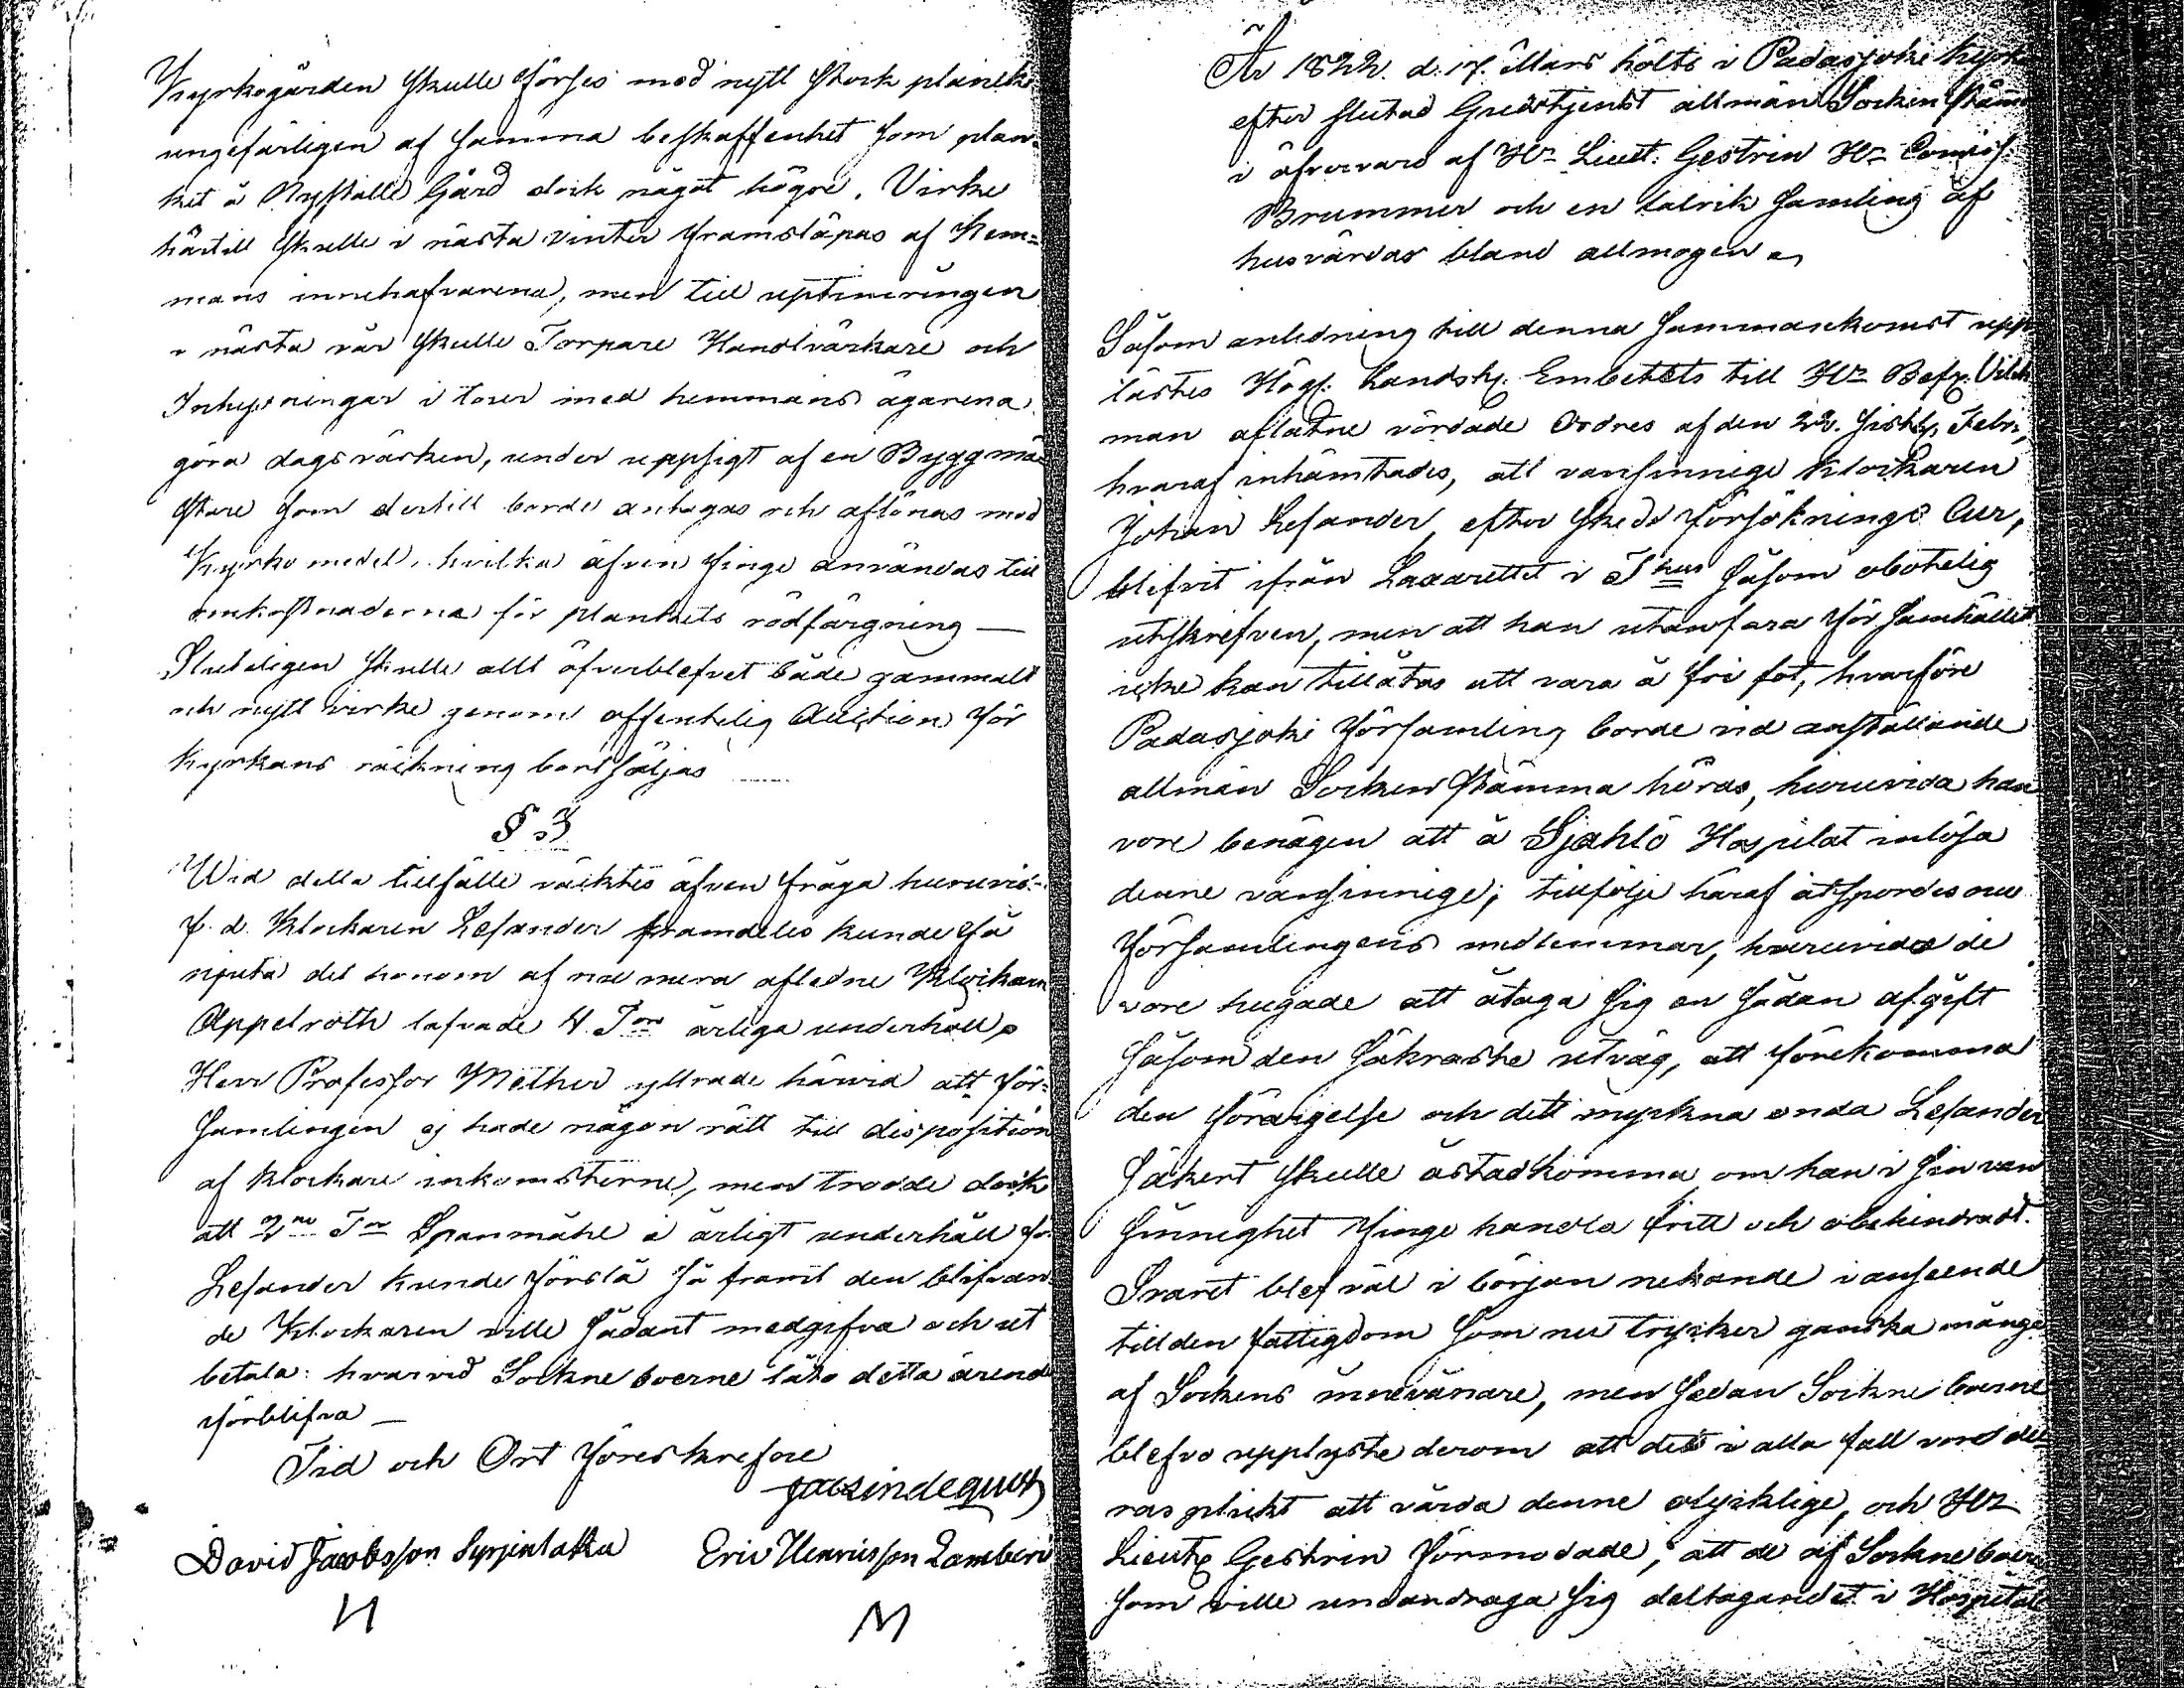 Kyrkogården skulle förses med nytt stock plank
ungefärligen af samma beskaffenhet som plan-
ket å Nyställe Gård dock något högre. Virke
härtill skulle i nästa vinter framsläpas af Hem=
mans innehafvarena, men till uptimringen
i nästa vår skulle Torpare Handtvärkare och
Inhysningar i tour med hemmans ägarena
göra dagsvärken, under uppsigt af en Byggmä
stare som dertill borde antagas och aflönas med
Kyrko medel, hvilka äfven finge användas till
omkostnaderna för plankets rödfärgning —
Sluteligen skulle allt öfverblefvet både gammalt
och nytt virke genom offentelig Auction för
Kyrkans räckning bortsäljas
§ 3
Wid detta tillfälle väcktes äfven fråga huruvid-
f. d. Klockaren Lesander framdeles kunde få
njuta det honom af nu mera aflidne Klockaren
Appelroth lofvade 4. Tnr årliga underhåll,
Herr Professor Mether yttrade härvid att för=
samlingen ej hade någon rätt till disposition
af klockare inkomsterne, men trodde dock
att 2ne Tnr Spanmåhl i årligt underhåll för
Lesander kunde förslå så framt den blifvan-
de Klockaren ville sådant medgifva och ut
betala: hvarvid Sockneboerne läto detta ärende
förblifva —
Tid och Ort föreskrefne
David Jacobsson Syrjentaka Eric Henricsson Lamberi
År 1822. d. 17. Mars hölts i Padasjoki kyrka
efter slutad Gudstjenst allmän Socken stäm
i öfvervaro af Hr Lieut: Gestrin Hr Comiss.
Brummer och en talrik samling af
husvärdar bland allmogen
Såsom anledning till denna sammankomst upp
lästes Högl. Landsh. Embetets till Hr Befx. Vilck
man aflåtne vördade Ordres af den 22. sistl. Febr.,
hvaraf inhämtades, att vansinnige klockaren
Johan Lesander, efter skedd försöknings Cur,
blifvit ifrån Lazarettet i Thus såsom obotelig
utskrefven, men att han utan fara för samhället
icke kan tillåtas att vara å fri fot, hvarföre
Padasjoki församling borde vid anställande
allmän Socken stämma höras, huruvida han
vore benägen att å Sjählö Hospital inlösa
denne vansinnige; tillfölje häraf åtspordes nu
församlingens medlemmar, huruvida de
vore hugade att åtaga sig en sådan afgift
såsom den säkraste utväg, att förekomma
den förargelse och dett myckna onda Lesander
säkert skulle åstadkomma om han i sin van
sinnighet finge handla fritt och obehindradt.
Svaret blef väl i början nekande i anseende
till den fattigdom som nu trycker ganska många
af Sockens innevånare, men sedan Sockne boerne
blefvo upplyste derom att det i alla fall vore de
ras plickt att vårda denne olycklige, och Hr
Lieut Gestrin förmodade, att de af Sockneboer
som ville undandraga sig deltagandet i Hospitals